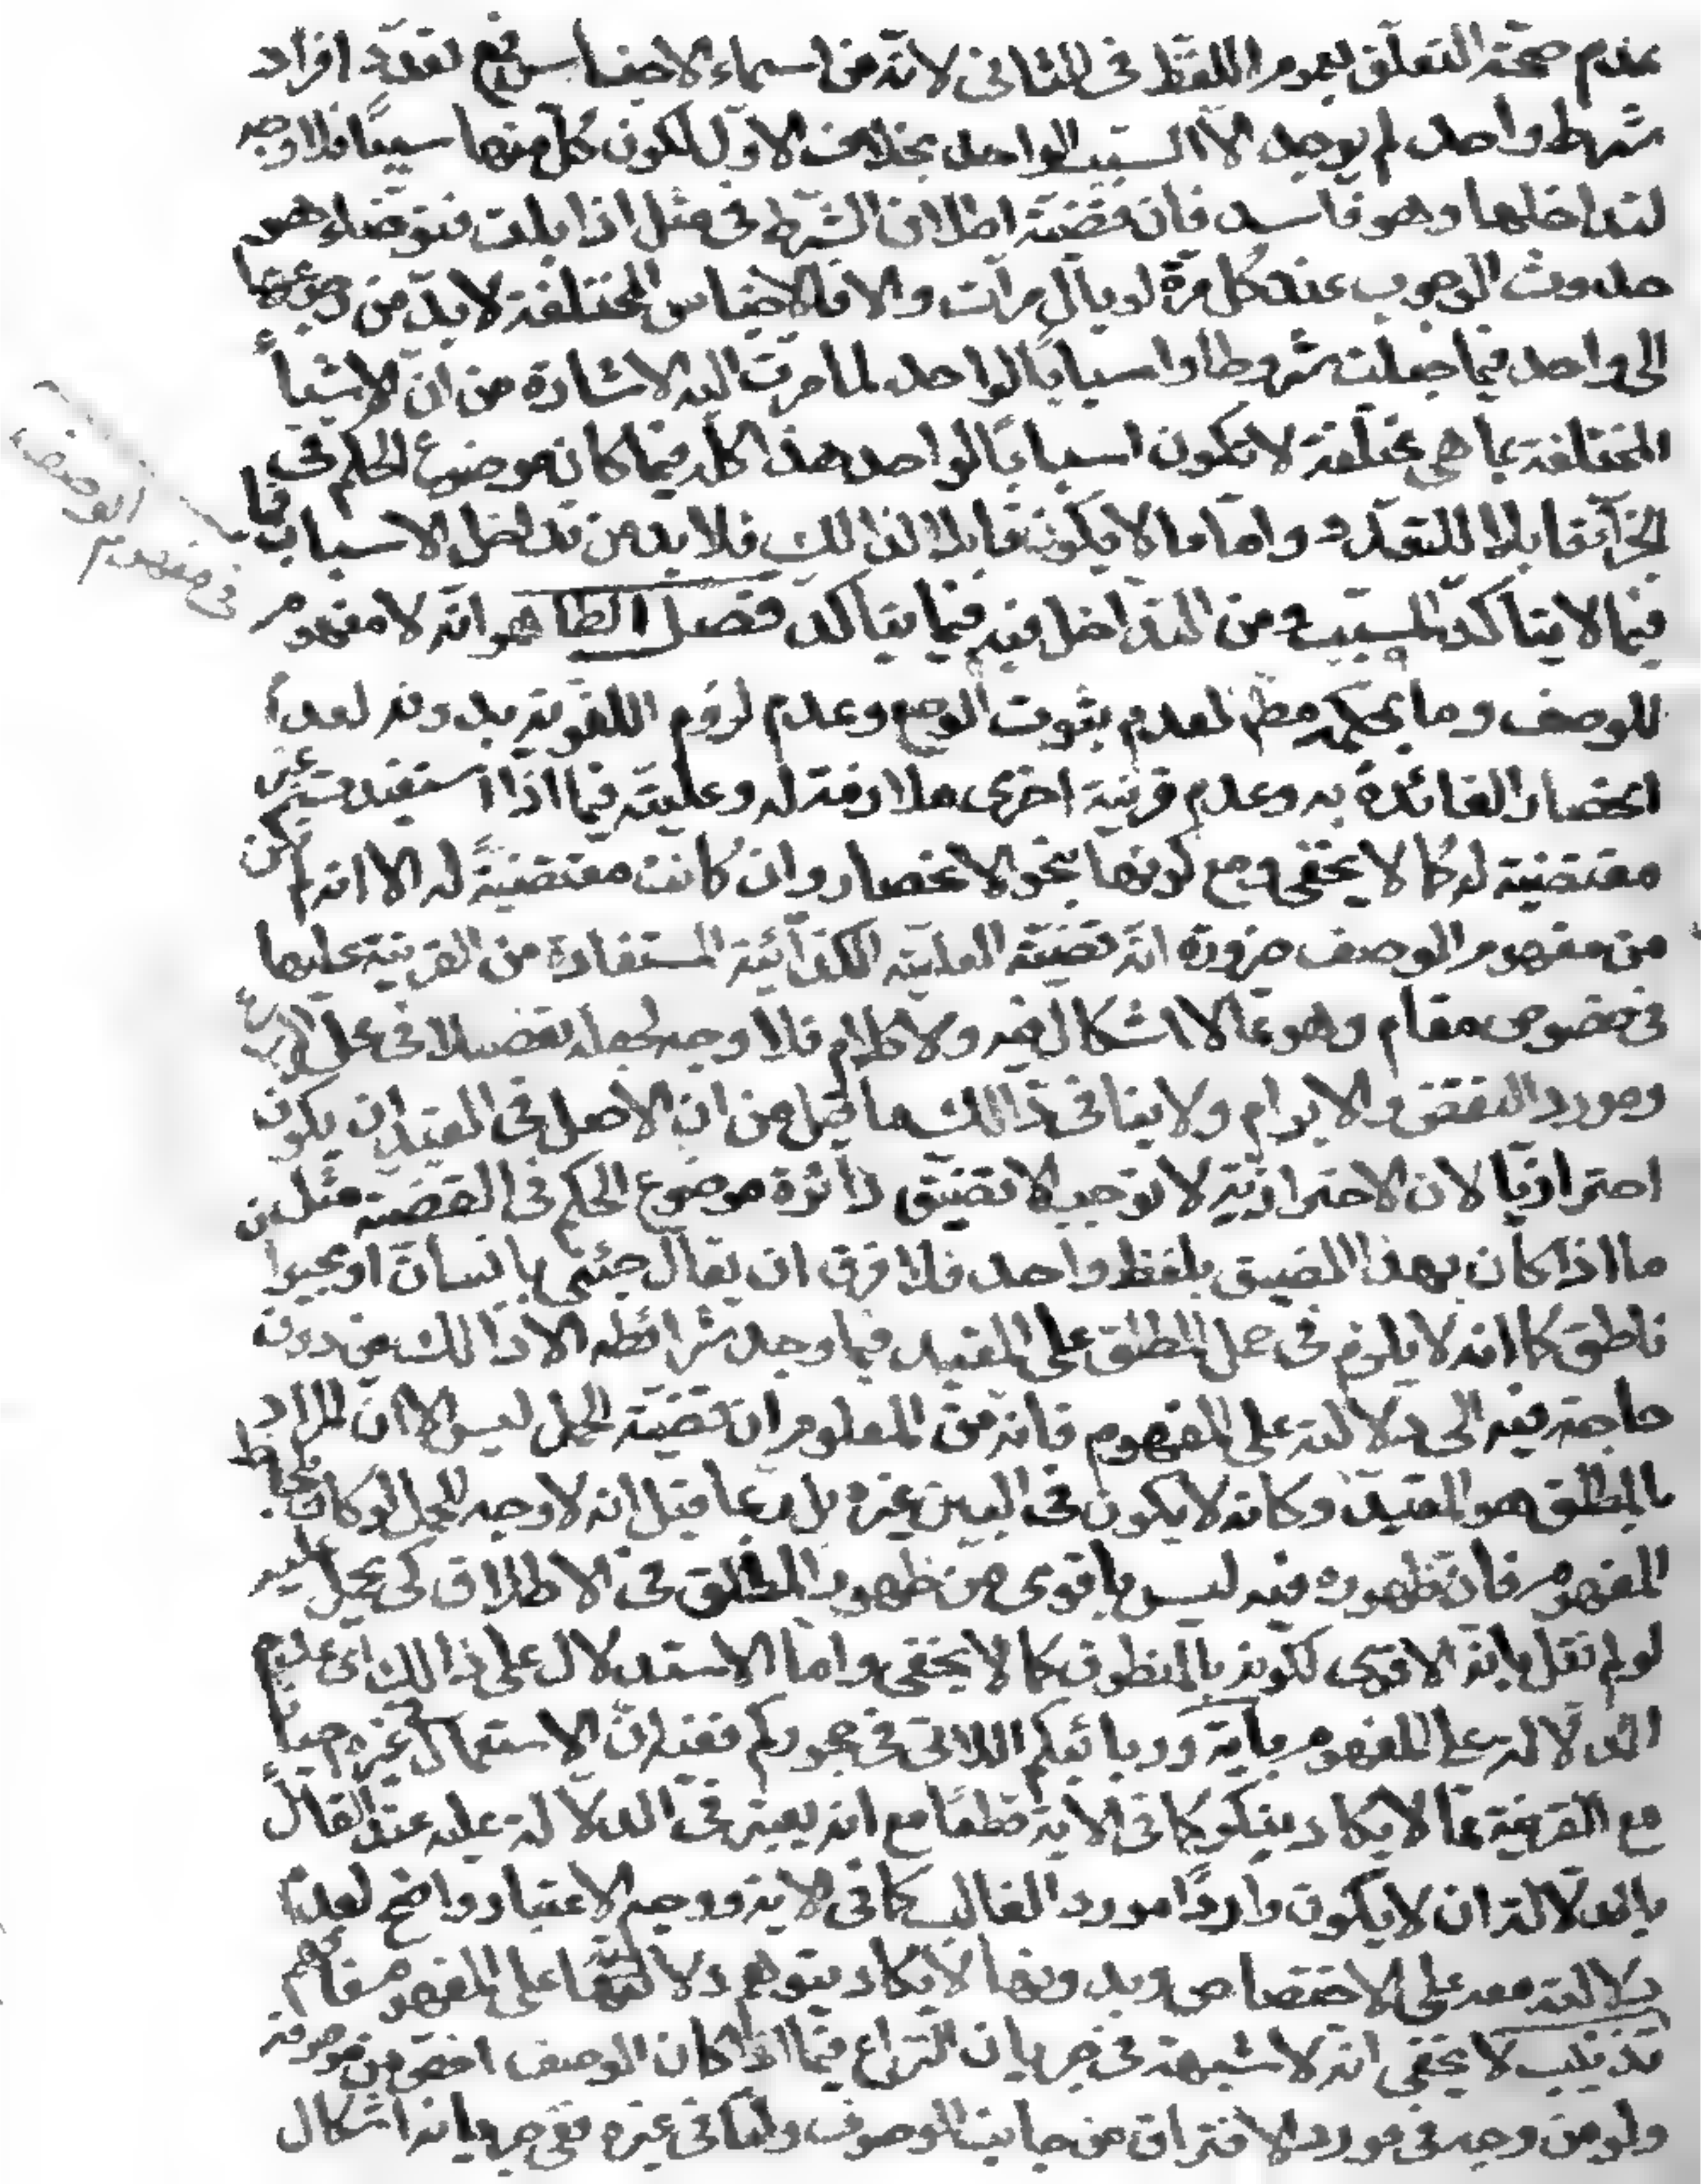 عدم صحّة التعلّق بعموم اللفظ فى الثانى لانّه من اسماء الاجناس فمع تعدّد افراد
شرط واحد لم يوجد الاّ السبب الواحد بخلاف الاوّل لكون كلّ منها سببًا فلا وجه
لتداخلها وهو فاسد فان قضيّة اطلاق الشرط فى مثل اذا بلت فتوضّاء هو
حدوث الوجوب عند كلّ مرّة لو بال مرات والا فالاجناس المختلفة لا بدّ من رجوعها
الى واحد فيما جعلت شروطا واسبابًا لواحد لما مرت اليه الاشارة من انّ الاشياء
المختلفة بما هى مختلفة لا تكون اسبابًا لواحد هذا كلّه فيما كان موضوع الحكم فى
الجزآء قابلا للتعدّد واما ما لا يكون قابلا لذالك فلا بد من تداخل الاسباب فيما
فيما لا يتاكّد المسبّب ومن التداخل فيه فيما يتاكد فصل الظاهر انّه لا مفهوم
للوصف وما بحكمه مطز لعدم ثبوت الوضع وعدم لزوم اللغوية بدونه لعدم
انحصار الفائدة به وعدم قرينة اخرى ملازمة له وعليّته فيما اذا استفيدت غير
مقتضية له كما لا يخفى ومع كونها بنحو الانحصار وان كانت مقتضيةً له الا انه لم يكن
من مفهوم الوصف ضرورة انّه قضيّة العليّة الكذآئيّة المستفادة من القرينة عليها
فى خصوص مقام وهو ممّا لا اشكال فيه ولا كلام فلا وجه لجعله تفصيلا فى محل النزاع
ومورد النقض والابرام ولا ينافى ذالك ما قيل من ان الاصل فى القيد ان يكون
احترازيّا لان الاحترازيّة لا توجب الا تضييق دائرة موضوع الحكم فى القضيّة مثل
ما اذا كان بهذا الضيق بلفظ واحد فلا فرق ان يقال جئنى بانسان او بحيوان
ناطق كما انه لا يلزم فى حمل المطلق على المقيد فيما وجد شرائطه الا ذالك من دون
حاجة فيه الى دلالته على المفهوم فانه من المعلوم ان قضيّة الحمل ليس الا انّ المراد
بالمطلق هو المقيّد وكانه لا يكون فى البين غيره بل ربما قيل انه لا وجه للحمل لو كان بلحاظ
المفهوم فان ظهوره فيه ليس باقوى من ظهور المطلق فى الاطلاق كى يحمل عليه
لو لم نقل بانّه الاقوى لكونه بالمنطوق كما لا يخفى واما الاستدلال على ذالك اى عدم
الدلالة على المفهوم باية وربائبكم اللاتى فى حجوركم ففيه انّ الاستعمال فى غيره احيانًا
مع القرينة ممّا لا يكاد ينكر كما فى الاية قطعًا مع انه يعتبر فى الدلالة عليه عند القائل
بالدلالة ان لا يكون واردًا مورد الغالب كما فى الاية ووجه الاعتبار واضح لعدم
دلالته معه على الاختصاص وبدونها لا يكاد يتوهم دلالته على المفهوم فافهم
تذنيب لا يخفى انّه لا شبهة فى جريان النزاع فيما اذا كان الوصف اخص من موصوفه
ولو من وجه فى مورد الافتراق من جانب الموصوف وامّا فى غيره ففى جريانه اشكال
فى مفهوم
الوصف